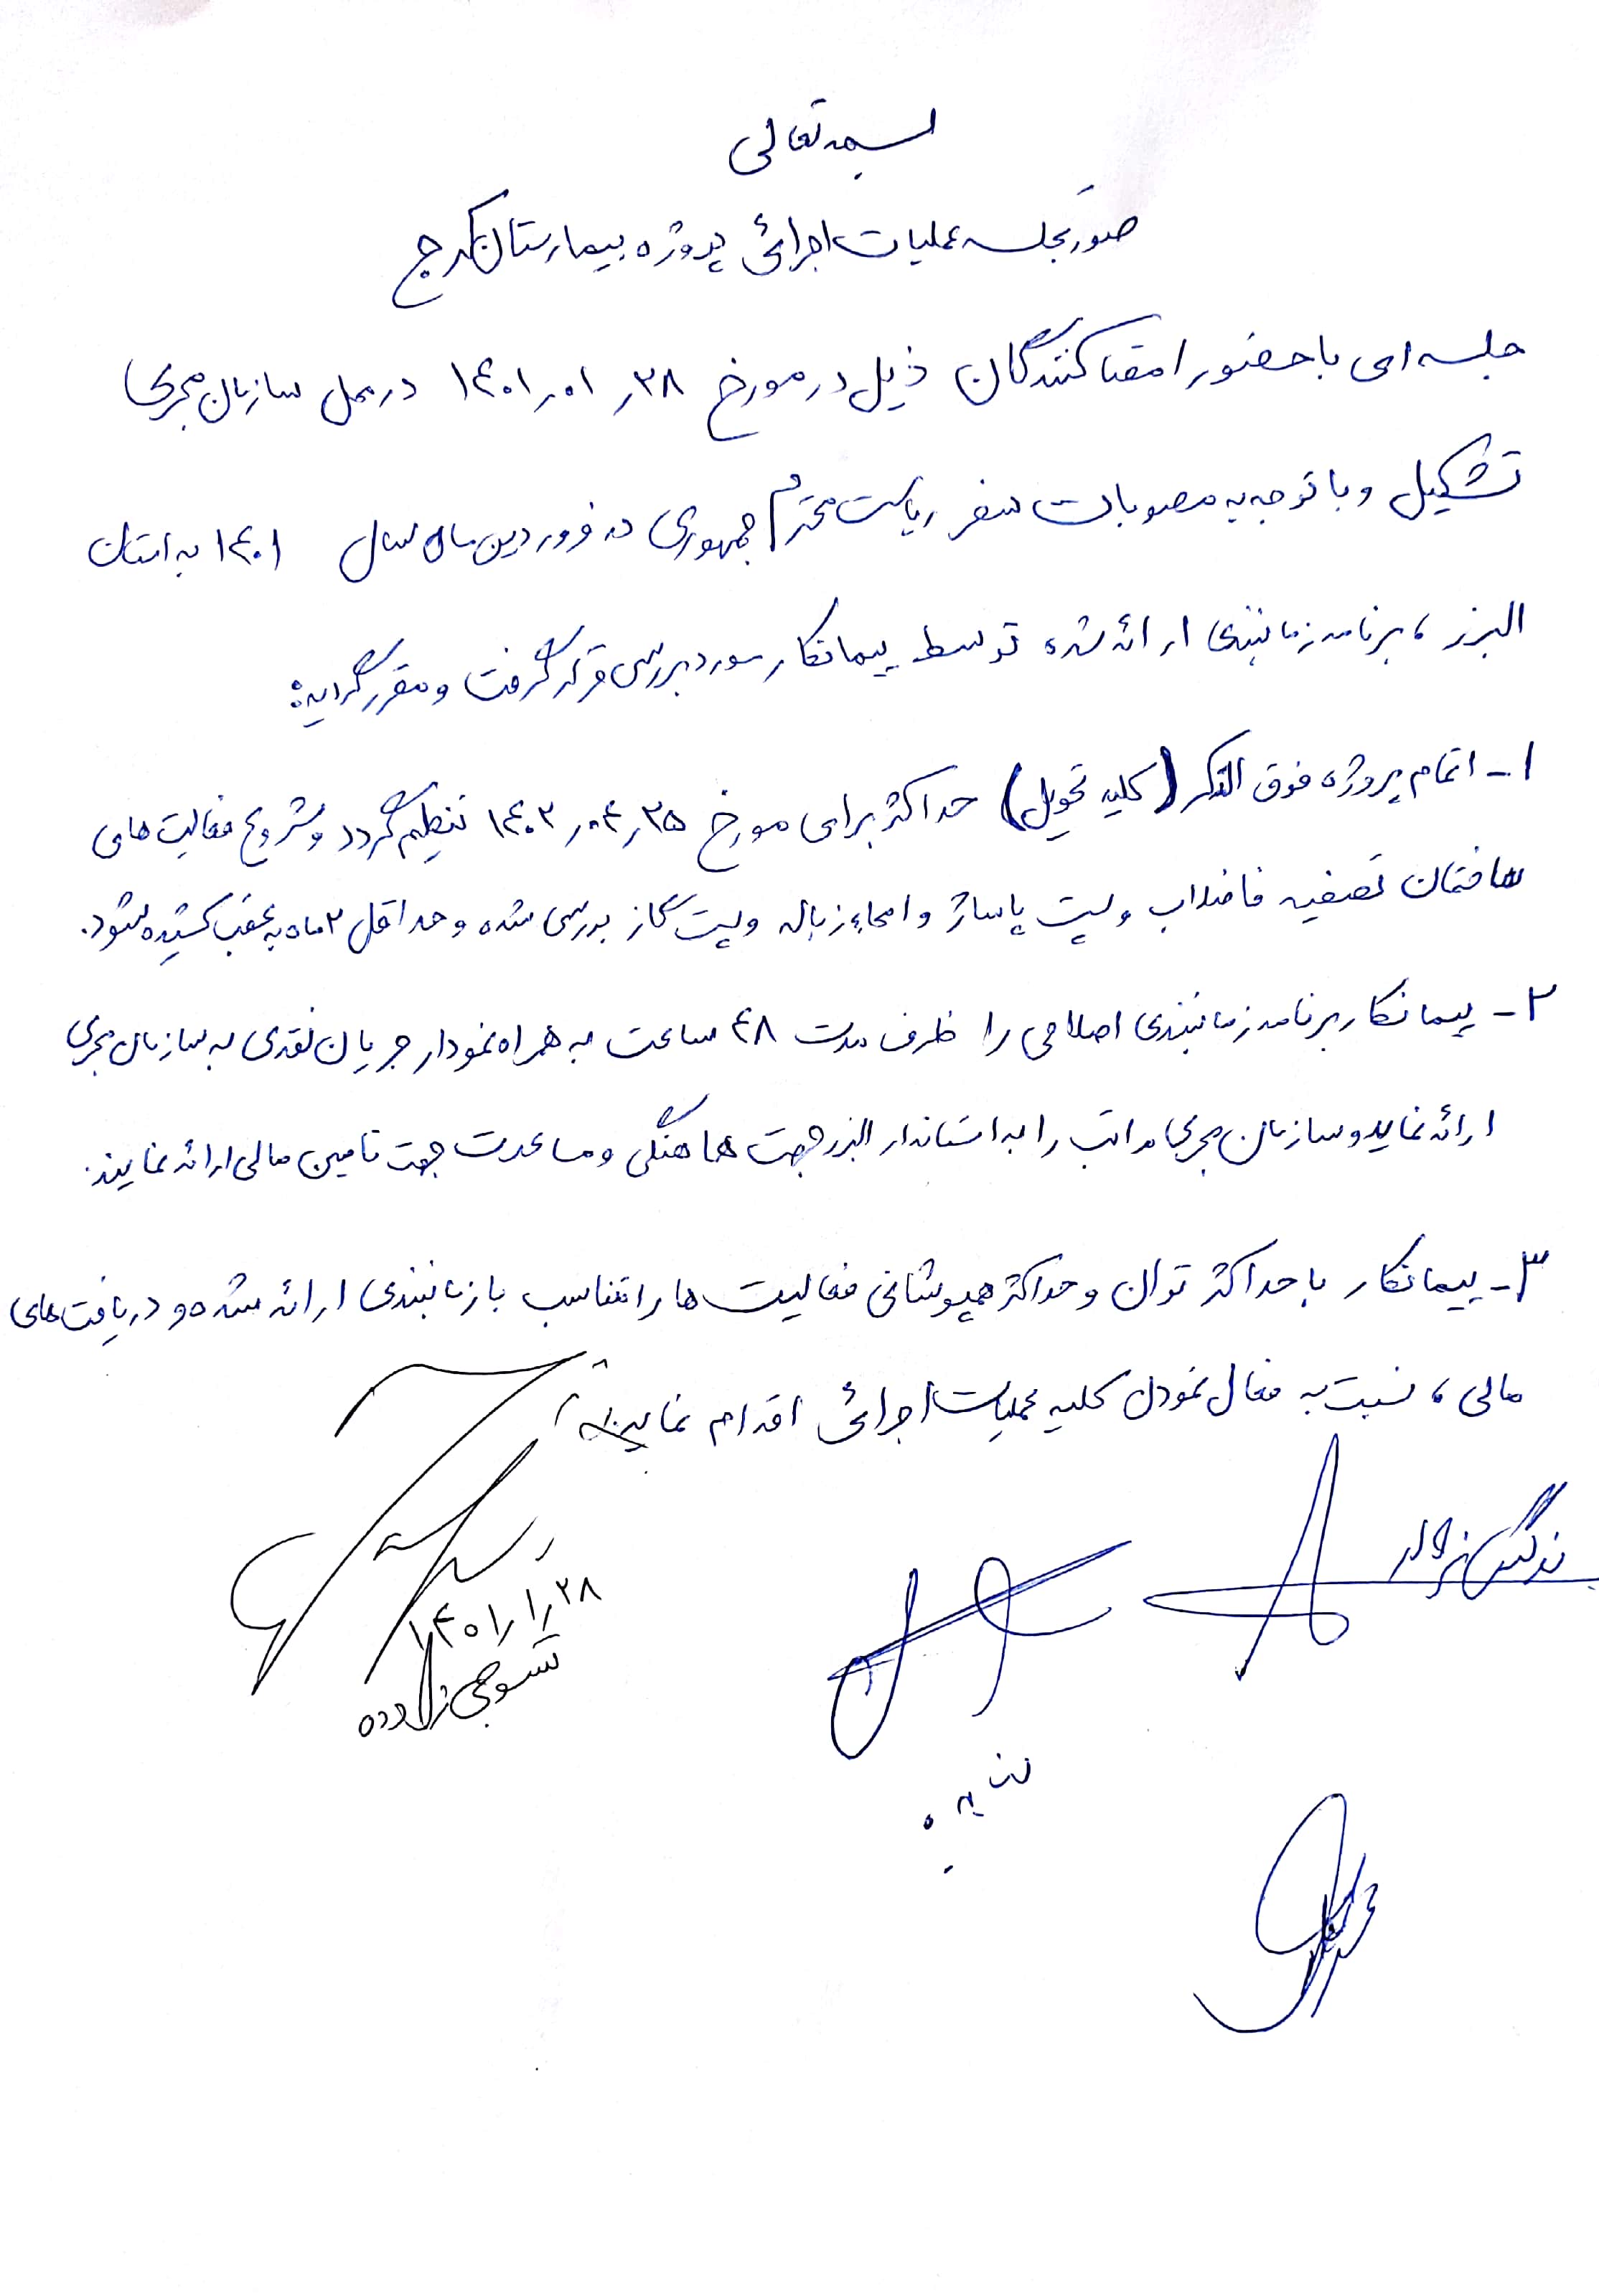 بسمه تعالی
صورتجلسه عملیات اجرائی پروژه بیمارستان کرج
جلسه ای با حضور امضا کنندگان ذیل در مورخ ۱۴۰۱٫۰۱٫۲۸ در محل سازمان مجری
تشکیل و با توجه به مصوبات سفر ریاست محترم جمهوری در فروردین ماه سال ۱۴۰۱ به استان
البرز ، برنامه زمانبندی ارائه شده توسط پیمانکار مورد بررسی قرار گرفت و مقرر گردید:
۱- اتمام پروژه فوق الذکر (کلید تحویل) حداکثر برای مورخ ۱۴۰۲٫۰۴٫۲۵ تنظیم گردد و شروع فعالیت های
ساختمان تصفیه فاضلاب و پست پاساژ و امحاء زباله و پست گاز بررسی شده و حداقل ۲ ماه به عقب کشیده شود.
۲- پیمانکار برنامه زمانبندی اصلاحی را ظرف مدت ۴۸ ساعت به همراه نمودار جریان نقدی به سازمان مجری
ارائه نماید و سازمان مجری مراتب را به استاندار البرز جهت هماهنگی و مساعدت جهت تامین مالی ارائه نمایند.
۳- پیمانکار با حداکثر توان و حداکثر همپوشانی فعالیت ها را متناسب با زمانبندی ارائه شده و دریافت های
مالی ، نسبت به فعال نمودن کلیه عملیات اجرائی اقدام نماید.
۱۴۰۱٫۱٫۲۸